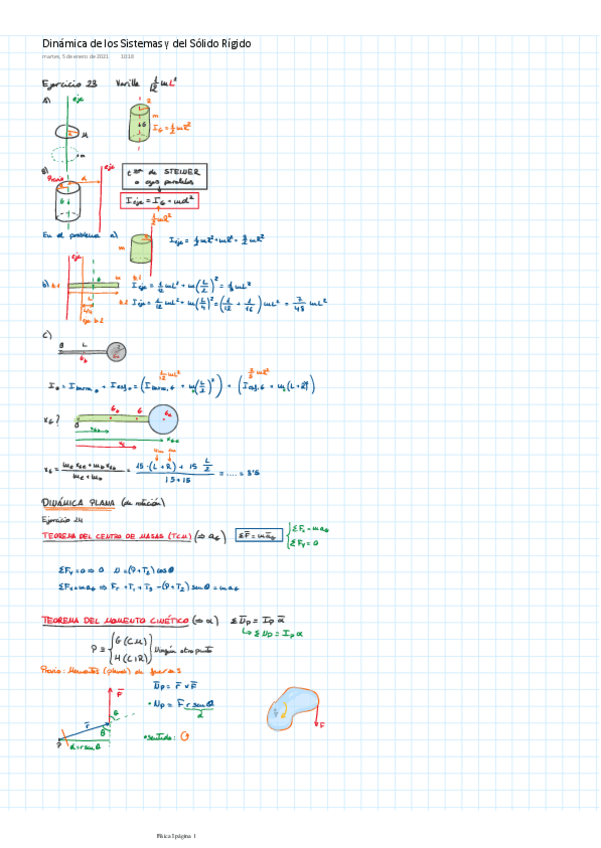 Dinámica de los Sistemas y del Sólido Rígido
martes, 5 de enero de 2021 10:18
Ejercicio 23 Varilla 1/12 mL²
A) eje
R
m
G I_G = 1/2 mR²
B) eje
Previo d
G
t ma de STEINER
o ejes paralelos
I eje = I_G + md²
1/2 mR²
En el problema a) m I eje = 1/2 mR² + mR² = 3/2 mR²
eje
b) b.1 G m b.1 I eje = 1/12 mL² + m(L/2)² = 1/3 mL²
b.2 I eje = 1/12 mL² + m(L/4)² = (1/12 + 1/16) mL² = 7/48 mL²
L/4
eje b.2
c)
L
1/12 mL² 2/5 mR²
x_G?
G G
x_G
L/2
15 · (L + R) + 15
15 + 15
= ..... = 3'5
DINÁMICA PLANA (de rotación)
Ejercicio 24
TEOREMA DEL CENTRO DE MASAS (TCM) (⇒ a_G) ΣF̄ = mā_G { ΣFx = ma_G
ΣFy = 0
ΣFy = 0 ⇒ 0 N = (P + T₂) cosθ
ΣFx = ma_G ⇒ Fr + T₁ + T₃ − (P + T₂) senθ = ma_G
TEOREMA DEL MOMENTO CINÉTICO (⇒ α) ΣN̄p = Ip ᾱ
↳ ΣNp = Ip α
P ≡ { G (CM)
H (CIR) } Ningún otro punto
Previo: Momentos (planos) de fuerzas
F̄ N̄p = r̄ × F̄
• Np = F r senθ
d
r̄ θ
θ
P d = r senθ
• sentido:
F
Física I página 1